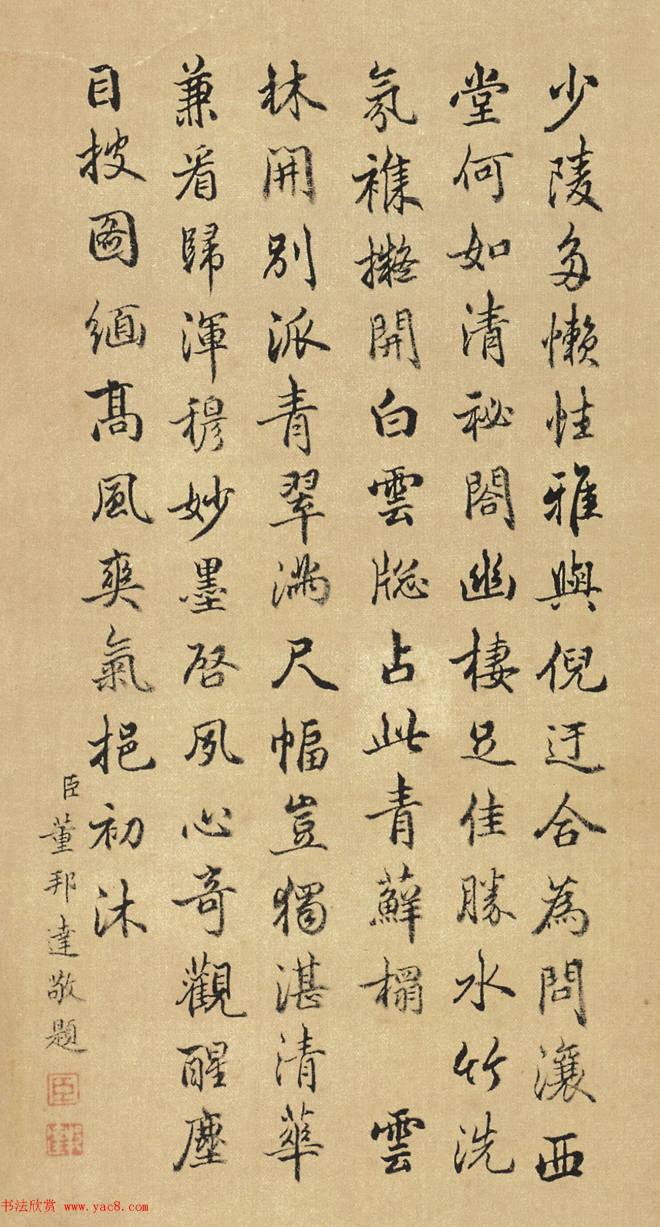 少陵多懶性雅與倪迂合為問瀼西
堂何如清祕閤幽棲足佳勝水竹洗
氛襍擬開白雲牕占此青蘚榻 雲
林開別派青翠滿尺幅豈獨湛清華
兼看歸渾穆妙墨啓夙心奇觀醒塵
目披圖緬髙風爽氣挹初沐
臣董邦達敬題
臣
书法欣赏 www.yac8.com